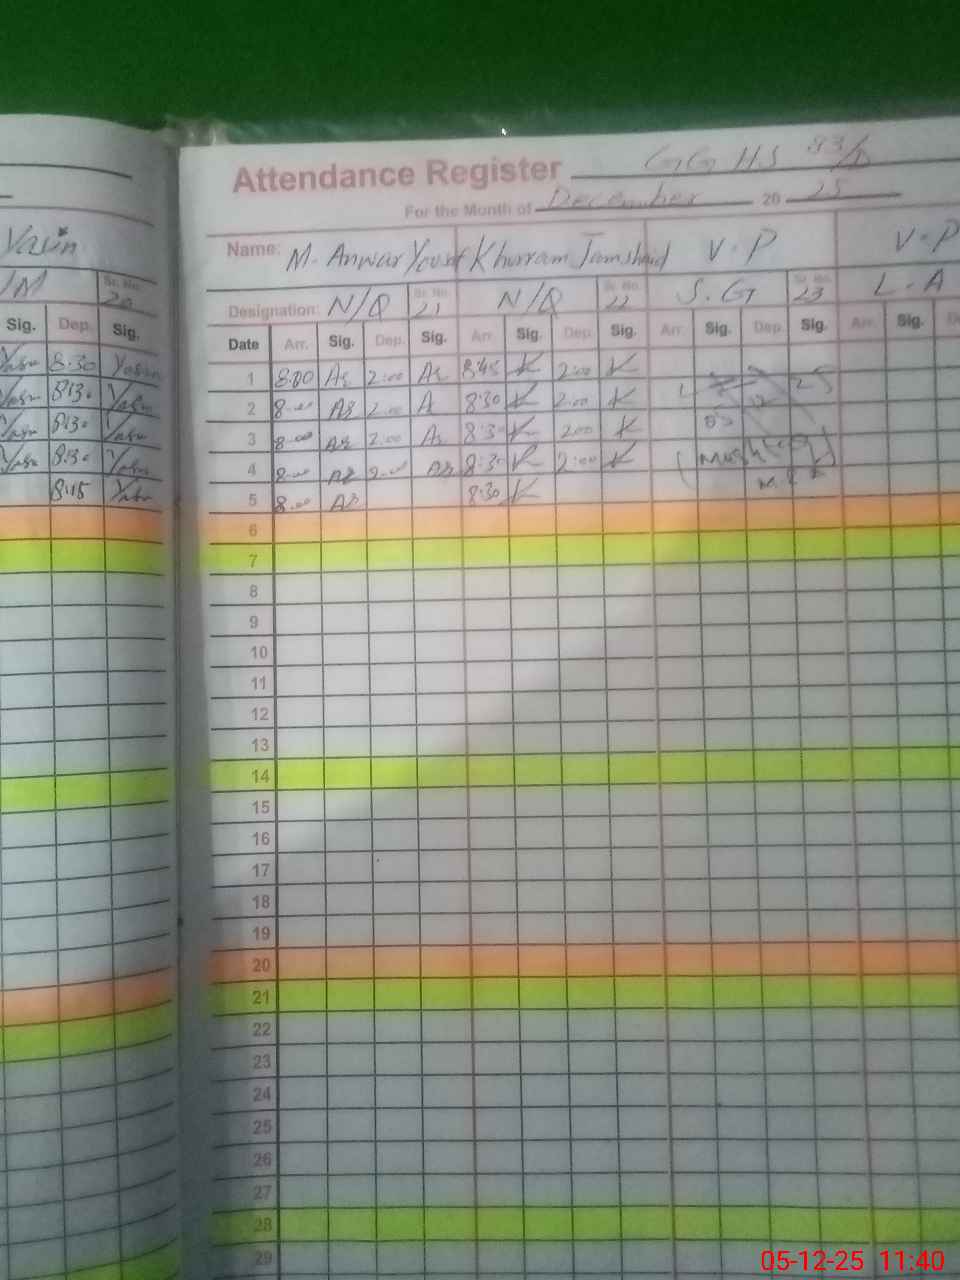 Attendance Register GGHS 83/
For the Month of December 20 25
Yasin
Name: M. Anwar Yousaf Khurram Jamshaid V.P V.P
/M Sr. No. 20
Designation: N/Q Sr. No. 21 N/Q Sr. No. 22 S.G Sr. No. 23 L.A
Sig. Dep. Sig.
Date Arr. Sig. Dep. Sig. Arr. Sig. Dep. Sig. Arr. Sig. Dep. Sig. Arr. Sig. De
8:30 Yasin
1 8:00 2:00 8:45 K 2:00 K
8:30 Yasin
2 8:00 2:00 8:30 K 2:00 K
8:30 Yasin
3 8:00 2:00 8:30 K 2:00 K
8:30 Yasin
4 8:00 2:00 8:30 K 2:00 K
8:15 Yasin
5 8:00 8:30 K
6
7
8
9
10
11
12
13
14
15
16
17
18
19
20
21
22
23
24
25
26
27
28
29
05-12-25 11:40